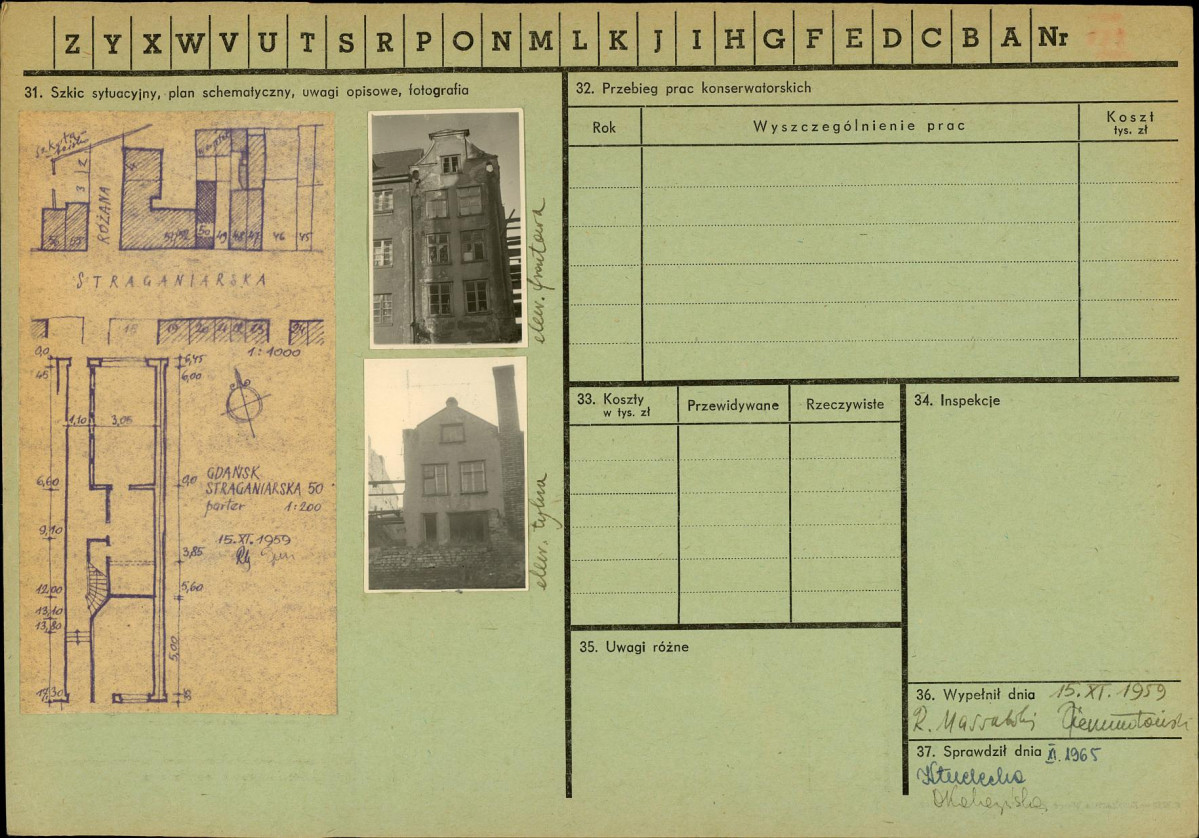 Z Y X W V U T S R P O N M L K J I H G F E D C B A Nr
31. Szkic sytuacyjny, plan schematyczny, uwagi opisowe, fotografia
2
3
RÓŻANA
4
50
49
48
47
46
45
55
STRAGANIARSKA
15
19
20
21
22
23
24
1:1000
0,0
45
6,45
6,00
1,10
3,05
GDAŃSK
STRAGANIARSKA 50
parter 1:200
15.XI.1959
6,60
0,0
9,10
3,85
12,00
5,60
13,10
13,80
5,00
17,30
elew. frontowa
elew. tylna
32. Przebieg prac konserwatorskich
Rok
Wyszczególnienie prac
Koszt
tys. zł
33. Koszty
w tys. zł
Przewidywane
Rzeczywiste
34. Inspekcje
35. Uwagi różne
36. Wypełnił dnia 15.XI.1959
R. Massalski
37. Sprawdził dnia XI.1965